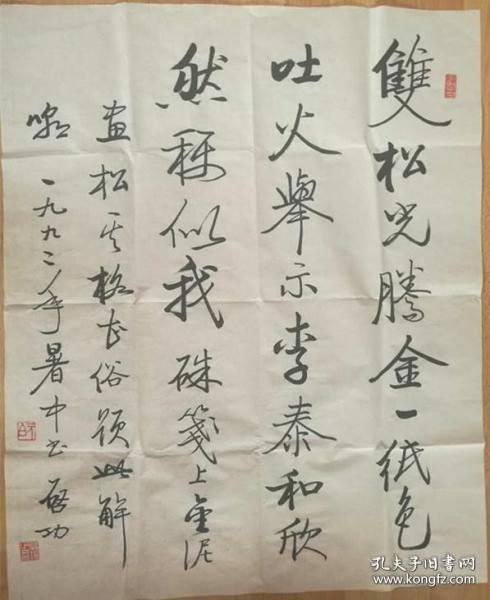 雙松光騰金一紙色
吐火舉示李泰和欣
然稱似我 硃箋上金泥
畫松其格甚俗題此解
嘲 一九九二年暑中書 啟功
孔夫子旧书网
www.kongfz.com